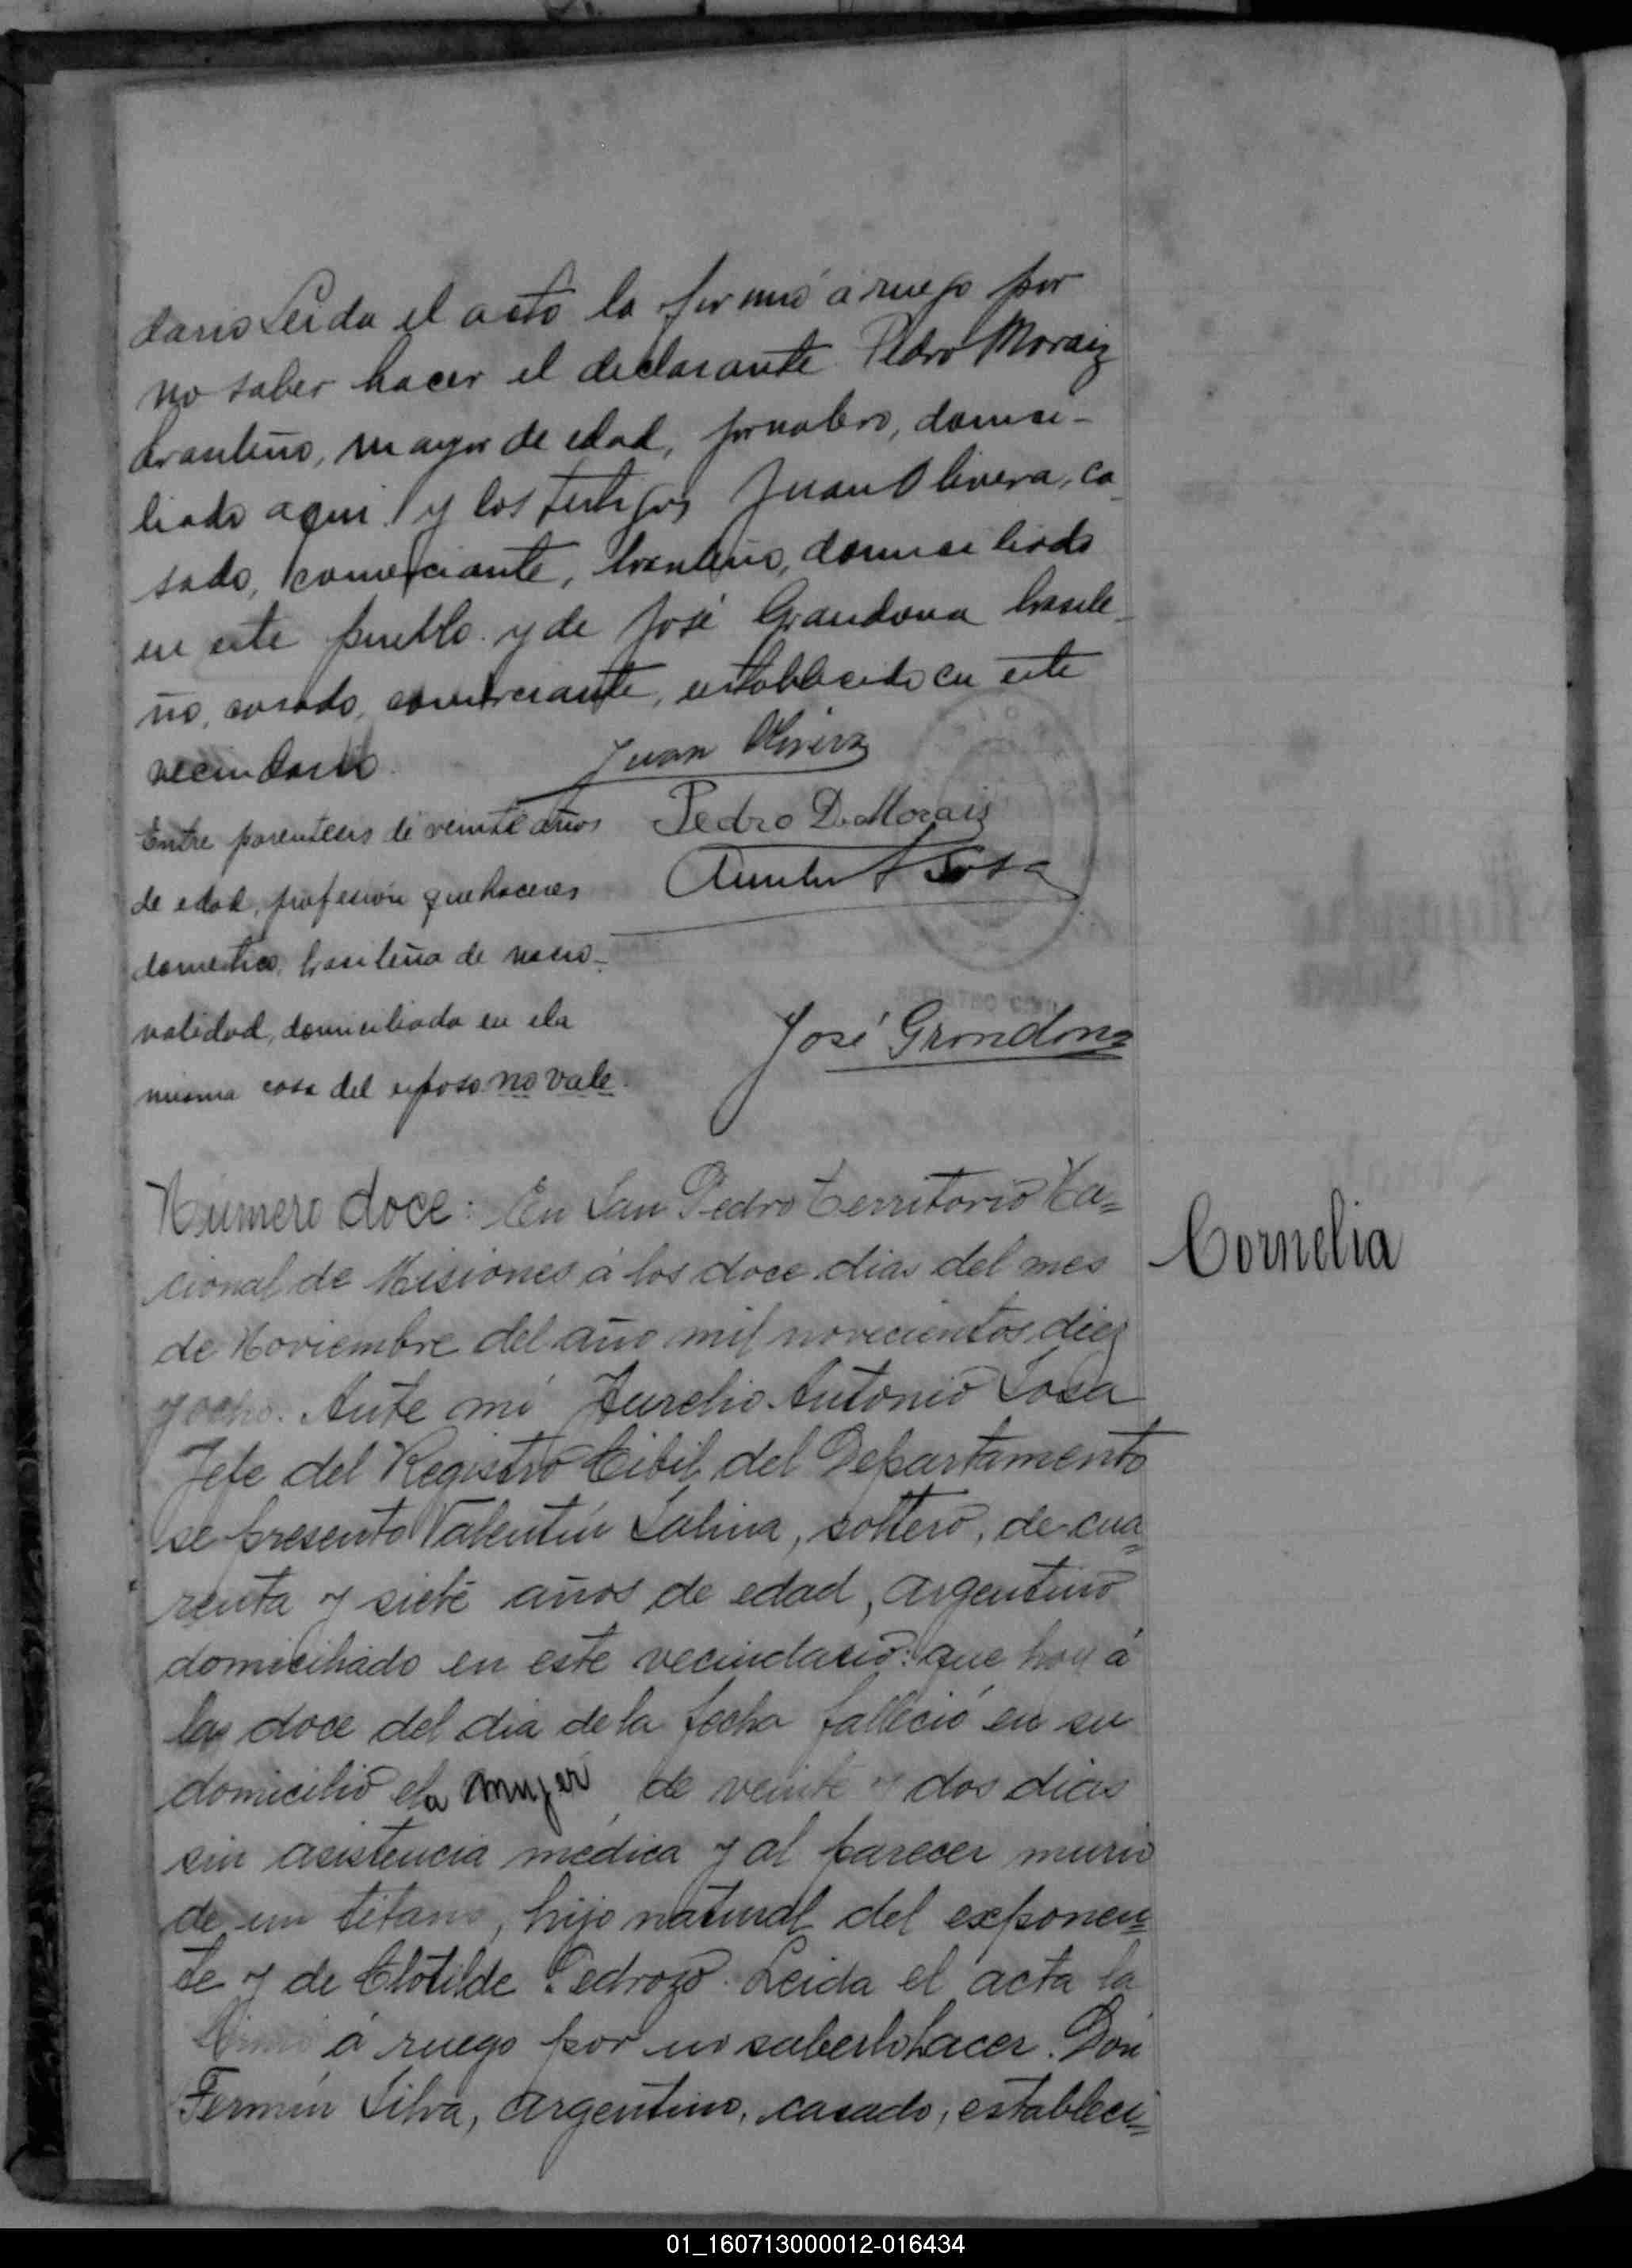 dario Leida el acto la firmó á ruego por
no saber hacer el declarante Pedro Moraiz
brasileño, mayor de edad, jornalero, domici-
liado aqui y los testigos Juan Olivera, ca-
sado, comerciante, brasileño, domiciliado
en este pueblo y de José Grandona brasile-
ño, casado, comerciante, establecido en este
vecindario.
Juan Olivera
Entre parentesis de veinte años
Pedro D. Moraiz
de edad, profesión quehaceres
Sosa
domestico, brasileña de nacio-
nalidad, domiciliada en ela
José Grondona
misma casa del esposo no vale.
Número doce: En San Pedro Territorio Na=
cional de Misiones á los doce dias del mes
Cornelia
de Noviembre del año mil novecientos diez
y ocho. Ante mi Aurelio Antonio Sosa
Jefe del Registro Cibil del Departamento
se presento Valentín Salina, soltero, de cua=
renta y siete años de edad, argentino
domiciliado en este vecindario: que hoy á
las doce del dia de la fecha falleció en su
domicilio ela mujer de veinte y dos dias
sin asistencia médica y al parecer murio
de un tétano, hijo natural del exponen=
te y de Clotilde Pedrozo. Leida el acta la
firmó á ruego por no saberlo hacer. Don
Fermín Silva, argentino, casado, estableci=
01_160713000012-016434